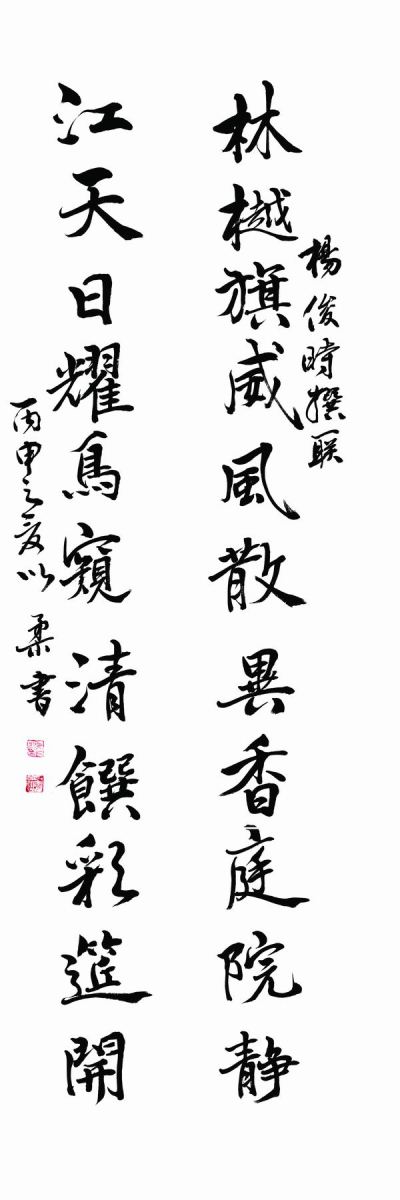 楊俊時撰联
林樾旗威風散異香庭院靜
江天日耀鳥窺清饌彩筵開
丙申之夏以柔書